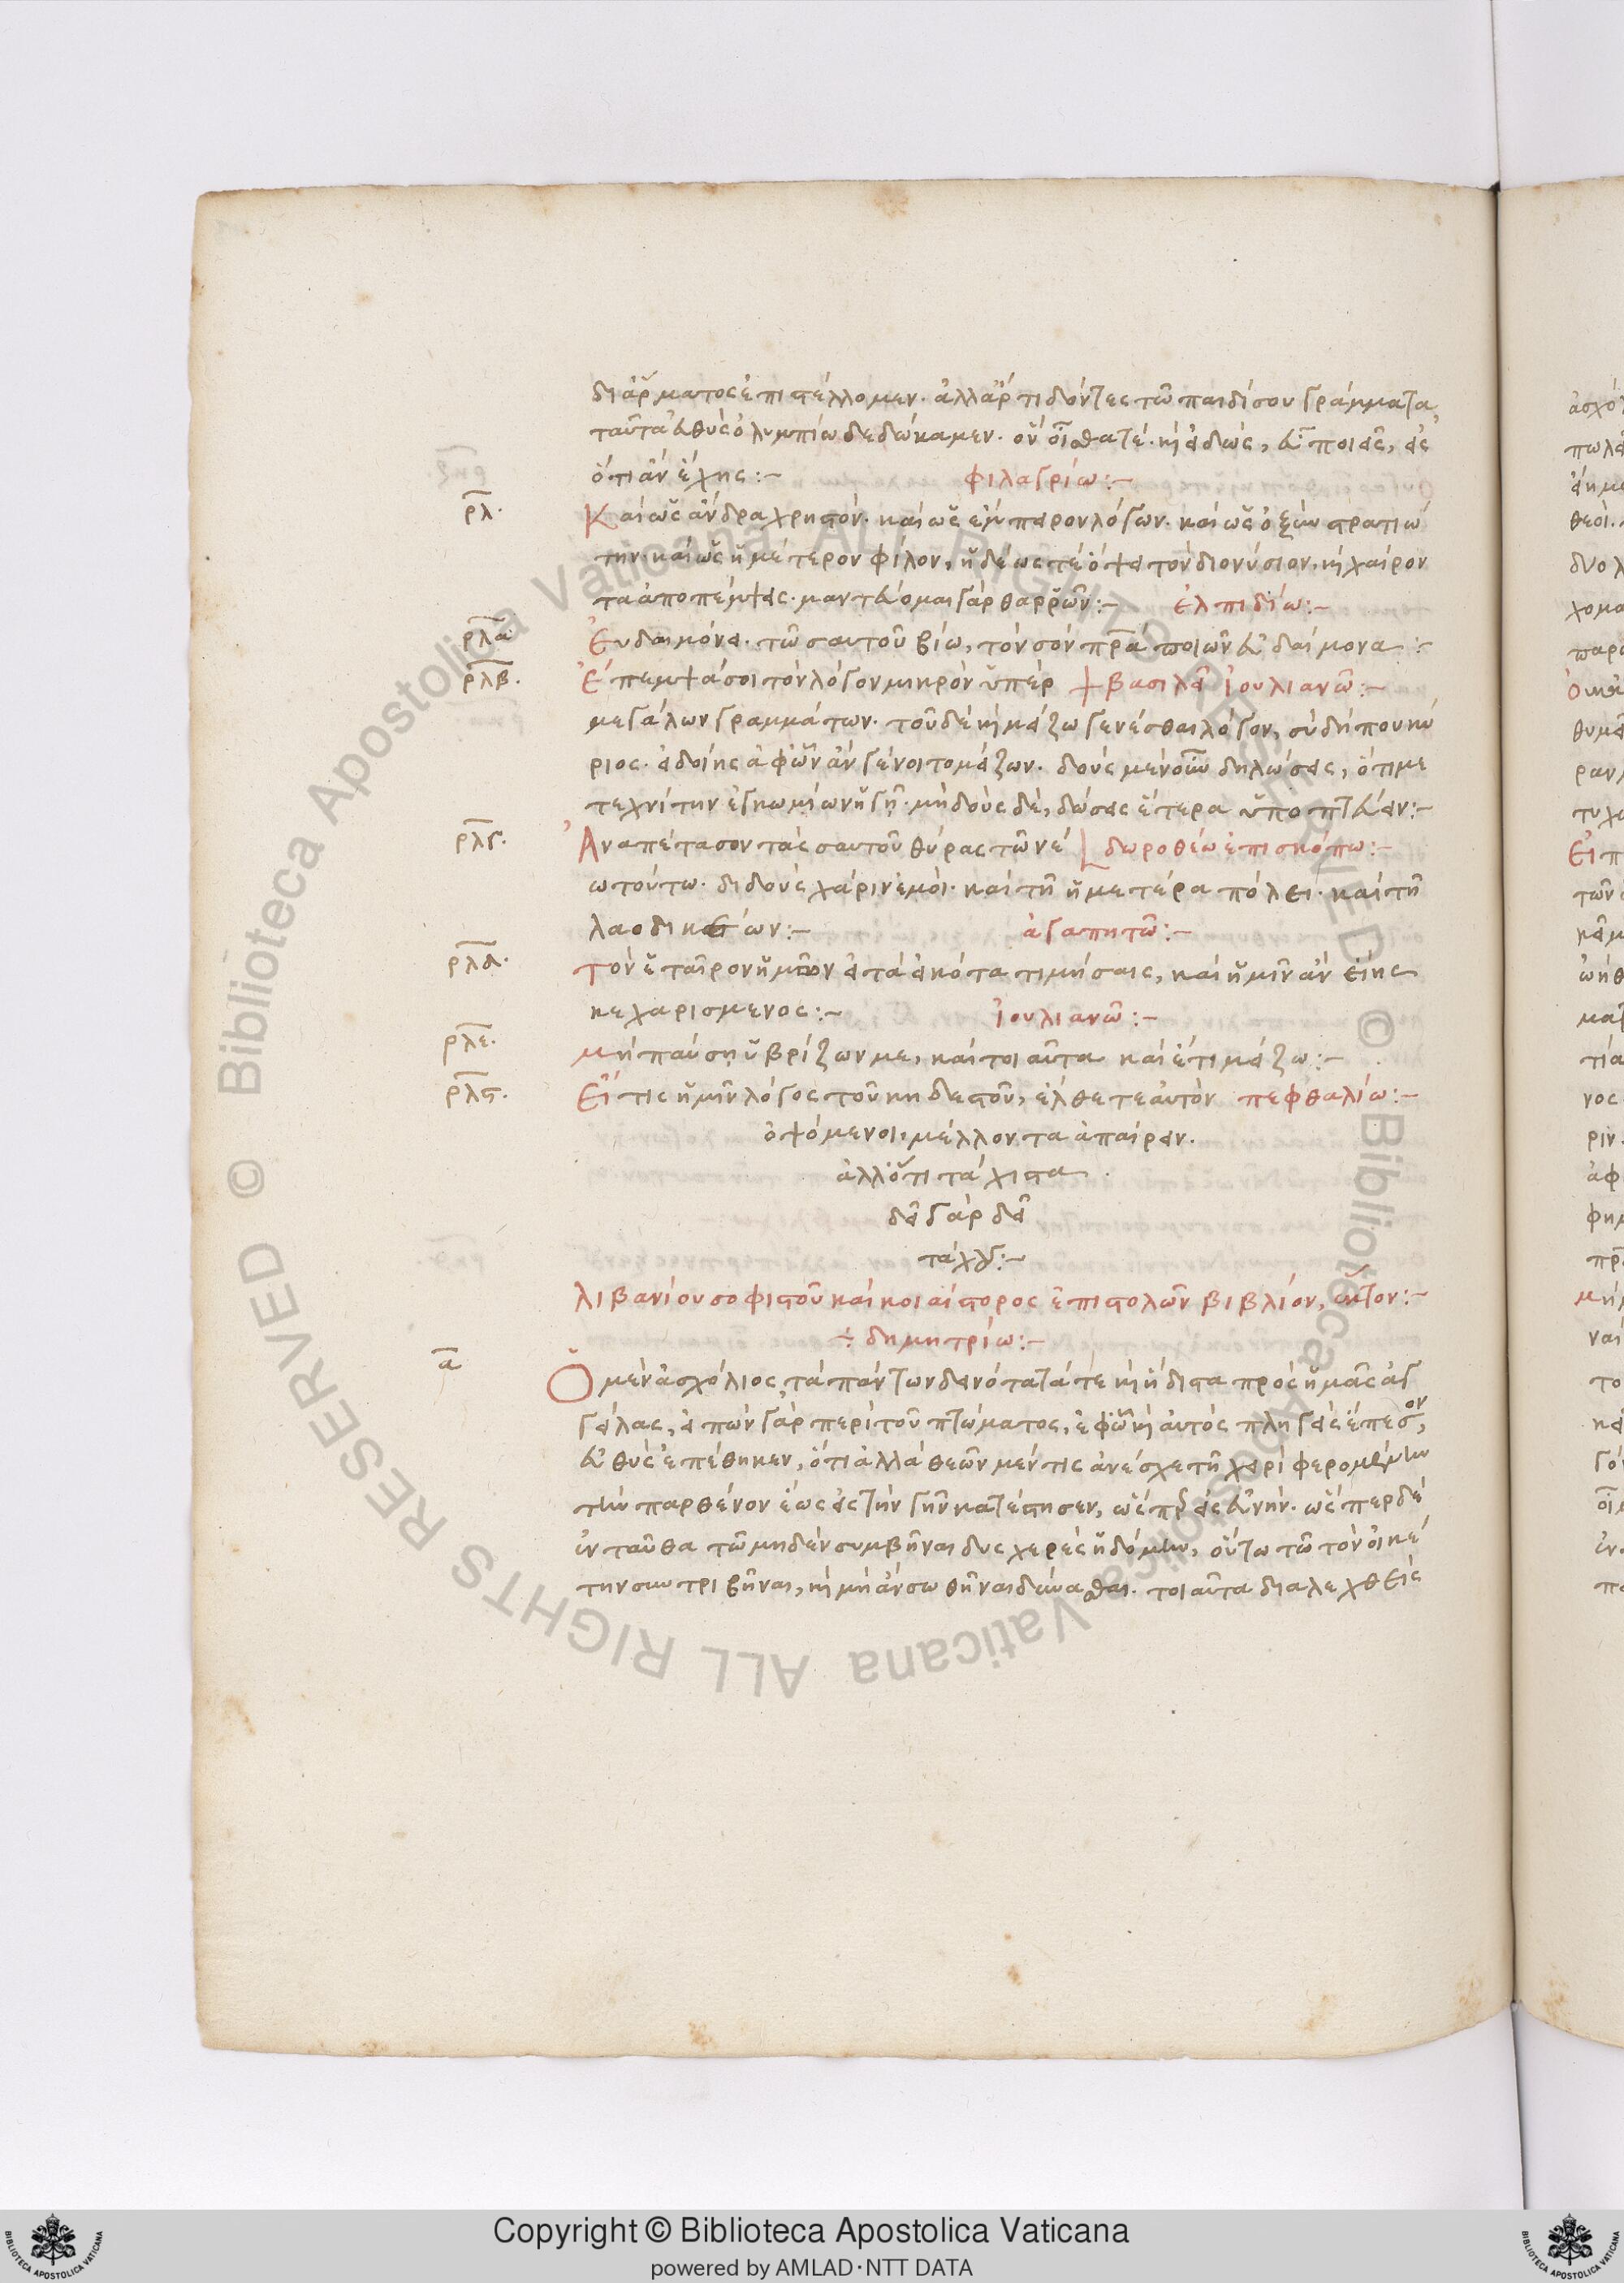 δι ἅρματος ἐπιστέλλομεν. ἀλλ ἄρτι δόντες τῶ παιδί σου γράμματα,
ταῦτα εὐθὺς ὀλυμπίω δεδώκαμεν. οὐ οἶσθα τέ. κὴ εἰδὼς, εὖ ποιεῖ, εἰς
ὅτι ἂν ἔχης:-
φιλαγρίω:-
ρλ.
Καὶ ὡς ἄνδρα χρηστὸν. καὶ ὡς ἔμπειρον λόγων. καὶ ὡς ὀξὺν στρατιώ
την. καὶ ὡς ἡμέτερον φίλον, ἡδέως τὲ ὄψει τὸν διονύσιον. κὴ χαίρον
τα ἀποπέμψεις. μαντεύομαι γὰρ θαρρῶν:-
ἐλπιδίω:-
ρλα
Ευδαιμόνει. τῶ σαυτοῦ βίω, τὸν σὸν πρα ποιῶν εὐδαίμονα:-
ρλβ.
Ἔπεμψά σοι τὸν λόγον μικρὸν ὑπὲρ
βασιλεῖ ἰουλιανῶ:-
μεγάλων γραμμάτων. τοῦ δὲ κὴ μείζω γενέσθαι λόγον, σὺ δήπου κύ
ριος. εἰ δοίης ἀφ ὧν ἂν γένοιτο μείζων. δοὺς μὲν οὖν δηλώσεις, ὅτι με
τεχνίτην ἐγκωμίων ἡγῆ. μὴ δοὺς δὲ, δώσεις ἕτερα ὑποπτεύειν:-
ρλγ.
Ἀναπέτασον τὰς σαυτοῦ θύρας τῶ νέ
δωροθέω ἐπισκόπω:-
ω τούτω. διδοὺς χάριν ἐμοὶ. καὶ τῆ ἡμετέρα πόλει. καὶ τῆ
λαοδικέων:-
ἀγαπητῶ:-
ρλδ.
Τὸν ἑταῖρον ἡμῶν εἰ τὰ εἰκότα τιμήσαις, καὶ ἡμῖν ἂν εἴης
κεχαρισμενος:-
ἰουλιανῶ:-
ρλε.
μὴ παύση ὑβρίζων με, καὶ τοιαῦτα καὶ ἔτι μείζω:-
ρλς.
Εἴ τις ἡμῖν λόγος τοῦ κηδεστοῦ, ἔλθετε αὐτὸν
πεφθαλίω:-
ὀψόμενοι, μέλλοντα ἀπαίρειν.
ἀλλ ὅτι τάχιστα.
δεῖ γὰρ δεῖ
τάχους:-
λιβανίου σοφιστοῦ καὶ κοιαίστορος ἐπιστολῶν βιβλίον, ἕκτον:-
÷ δημητρίω:-
α
Ὁ μὲν ἀσχόλιος, τὰ πάντων δεινότατά τε κὴ ἥδιστα πρὸς ἡμᾶς ἀγ
γείλας, εἰπὼν γὰρ περὶ τοῦ πτώματος, ἐφ ὧ κὴ αὐτὸς πληγεὶς ἔπεσον,
εὐθὺς ἐπέθηκεν, ὅτι ἀλλὰ θεῶν μέν τις ἀνέσχε τῆ χειρὶ φερομένην
τὴν παρθένον ἕως εἰς τὴν γῆν κατέστησεν, ὥσπερ εἰς εὐνήν. ὥσπερ δὲ
ἐνταῦθα τῶ μηδὲν συμβῆναι δυσχερὲς ἡδόμην, οὕτω τῶ τὸν οἰκέ
την συντριβῆναι, κὴ μὴ ἂν σωθῆναι δύνασθαι. τοιαῦτα διαλεχθεὶς
Copyright © Biblioteca Apostolica Vaticana
powered by AMLAD·NTT DATA